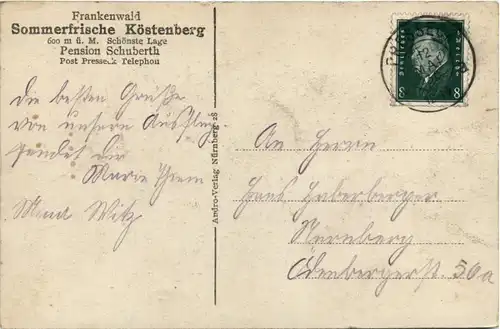 Frankenwald
Sommerfrische Köstenberg
600 m ü. M. Schönste Lage
Pension Schuberth
Post Presseck Telephon
Die besten Grüße
von unserm Ausflug
sendet dir
Marie Thiem
Witz
Andro-Verlag Nürnberg 28
Deutsches Reich
8 8
An Herrn
Hans Haberberger
Nürnberg
50a